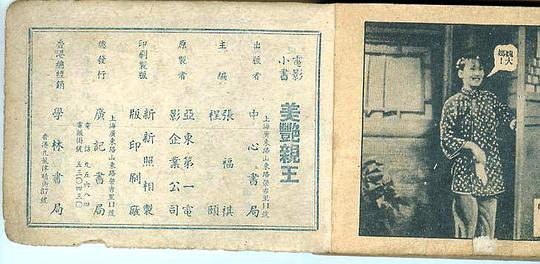 電影小書
美艷親王
出版者 中心書局
上海廣東路山東路榮吉里11號
主編 張福祺
程頤
原製者 亞東第一電影企業公司
印刷製版 新新照相製版印刷廠
總發行 廣記書局
上海廣東路山東路榮吉里11號
電話 九五六八四
電報掛號 五三〇四三〇
香港總經銷 學林書局
香港九龍津晴街37號
魏大娘!